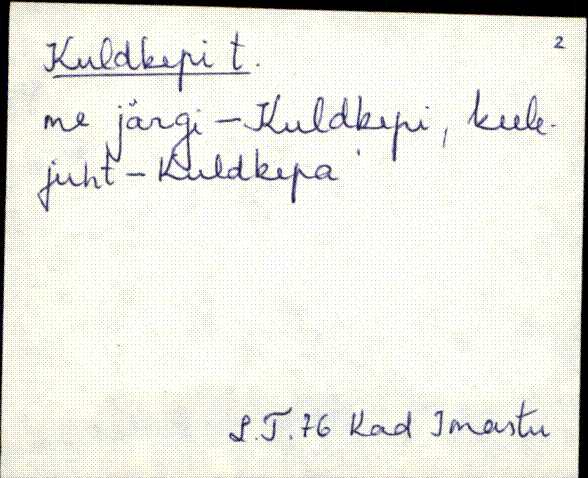 Kuldkepi t. 2
me järgi – Kuldkepi, keele-
juht – Kuldkepa
L.T. 76 Kad Imastu